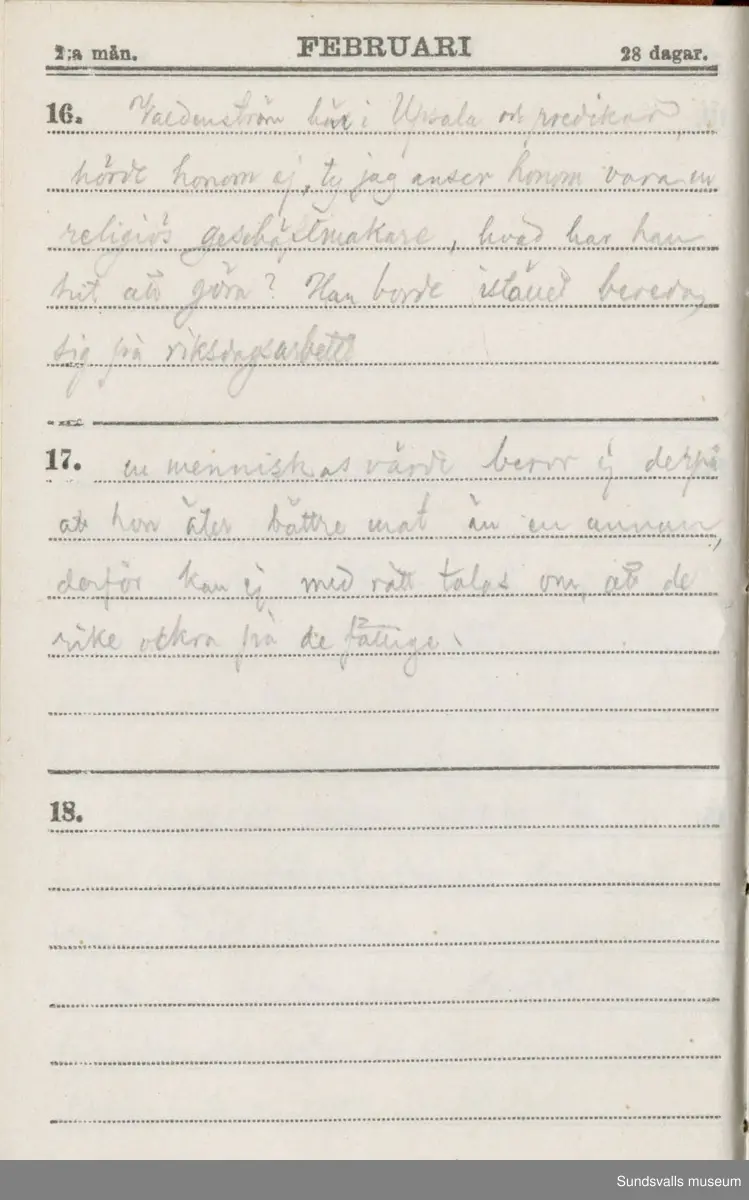 2:a mån. FEBRUARI 28 dagar.
16. Waldenström här i Upsala och predikar,
hörde honom ej, ty jag anser honom vara en
religiös geschäftmakare, hvad har han
hit att göra? Han borde istället bereda
sig på riksdagsarbete
17. en menniskas värde beror ej derpå
att hon äter bättre mat än en annan,
derför kan ej med rätt talas om, att de
rike ockra på de fattige.
18.
Sundsvalls museum